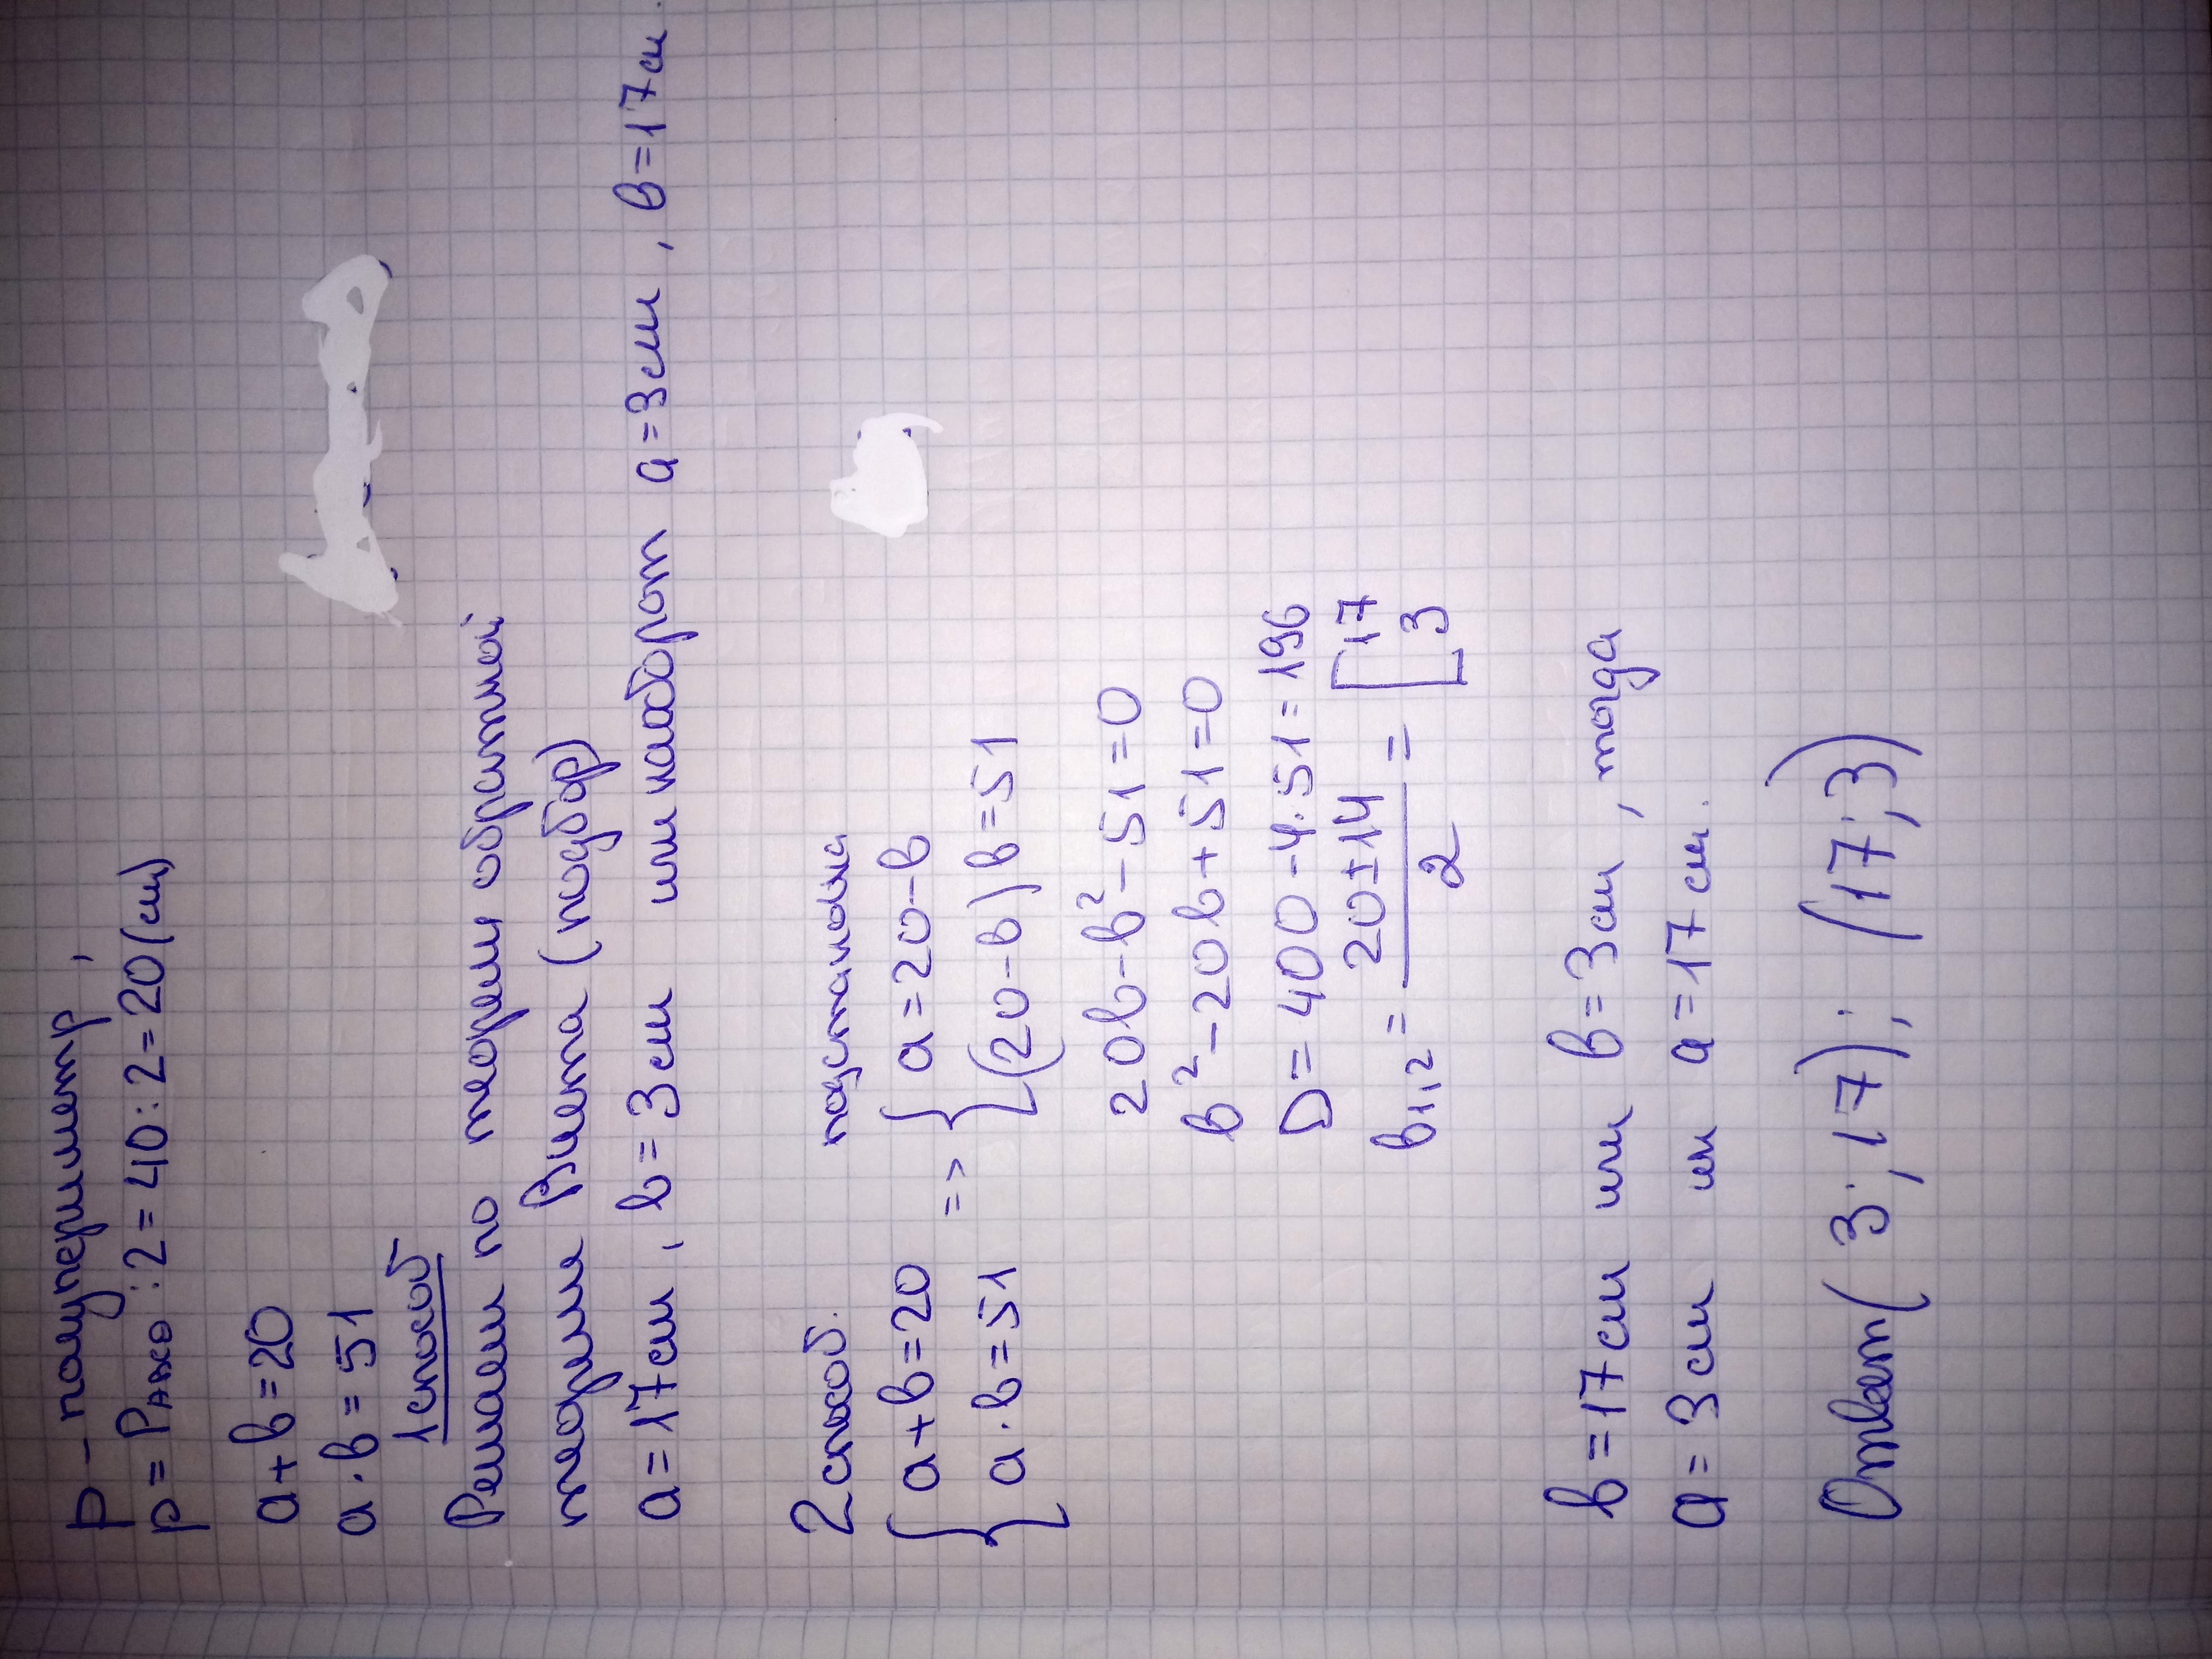 P – полупериметр,
p = P_ABCD : 2 = 40 : 2 = 20 (см)
a + b = 20
a · b = 51
1 способ
Решаем по теореме обратной
теореме Виета (подбор)
a = 17 см, b = 3 см или наоборот a = 3 см, b = 17 см.
2 способ. подстановка
{ a + b = 20 => { a = 20 – b
{ a · b = 51 { (20 – b) b = 51
20b – b² – 51 = 0
b² – 20b + 51 = 0
D = 400 – 4 · 51 = 196
b₁,₂ = (20 ± 14) / 2 = [ 17
[ 3
b = 17 см или b = 3 см, тогда
a = 3 см или a = 17 см.
Ответ (3; 17); (17; 3)